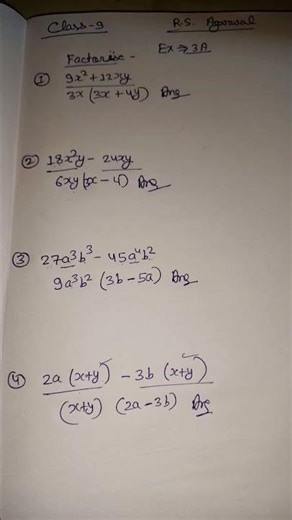 Class-9 R.S. Agarwal
Ex⇒3A
Factorise -
① 9x² + 12xy
3x (3x + 4y) Ans
② 18x²y - 24xy
6xy (3x - 4) Ans
③ 27a³b³ - 45a⁴b²
9a³b² (3b - 5a) Ans
④ 2a (x+y) - 3b (x+y)
(x+y) (2a - 3b) Ans